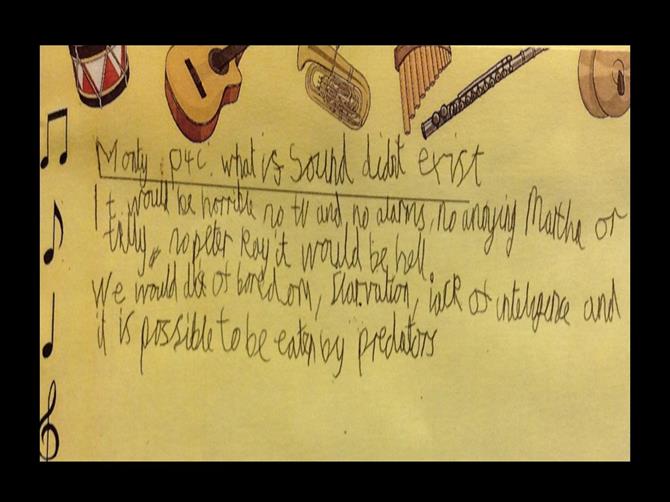 Monty P4C. what is Sound didnt exist
It would be horrible no tv and no alarms, no annoying Martha or
Tally, no peter Kay it would be hell
We would die of boredom, Starvation, lack of intelegense and
it is possible to be eaten by predators